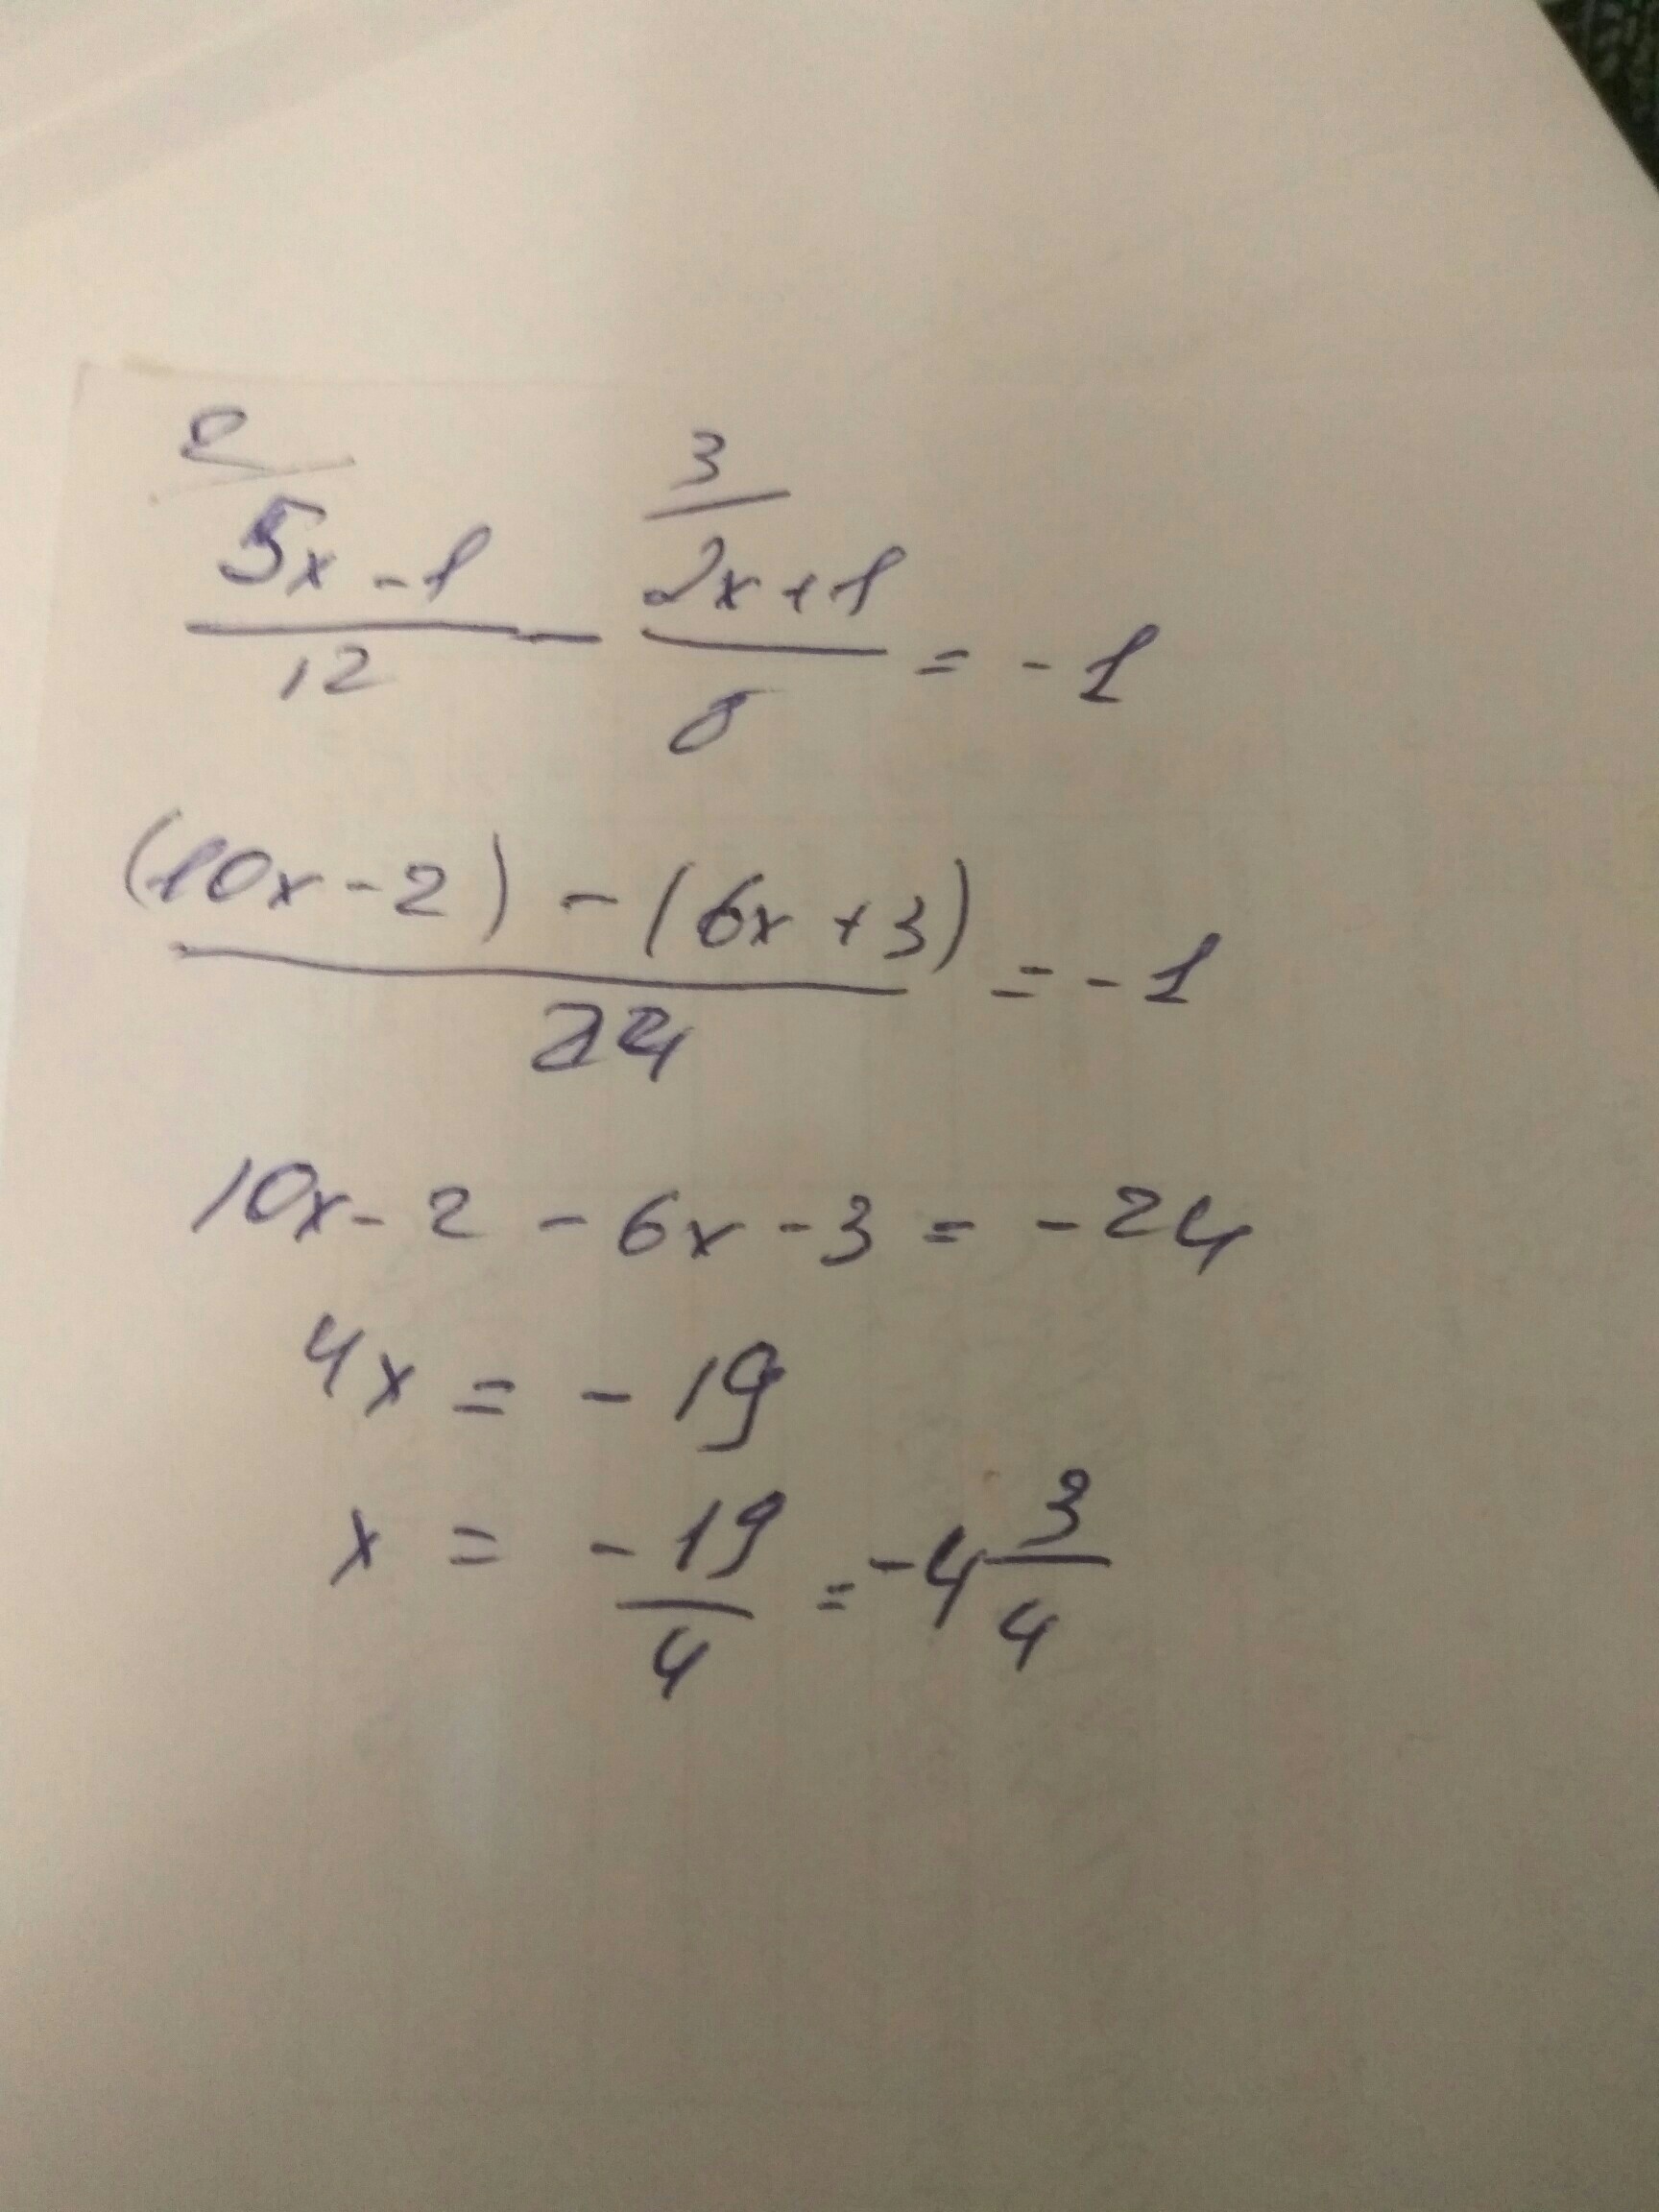 2 3
5x - 1 / 12 - 2x + 1 / 8 = - 1
(10x - 2) - (6x + 3) / 24 = - 1
10x - 2 - 6x - 3 = - 24
4x = - 19
x = - 19/4 = - 4 3/4